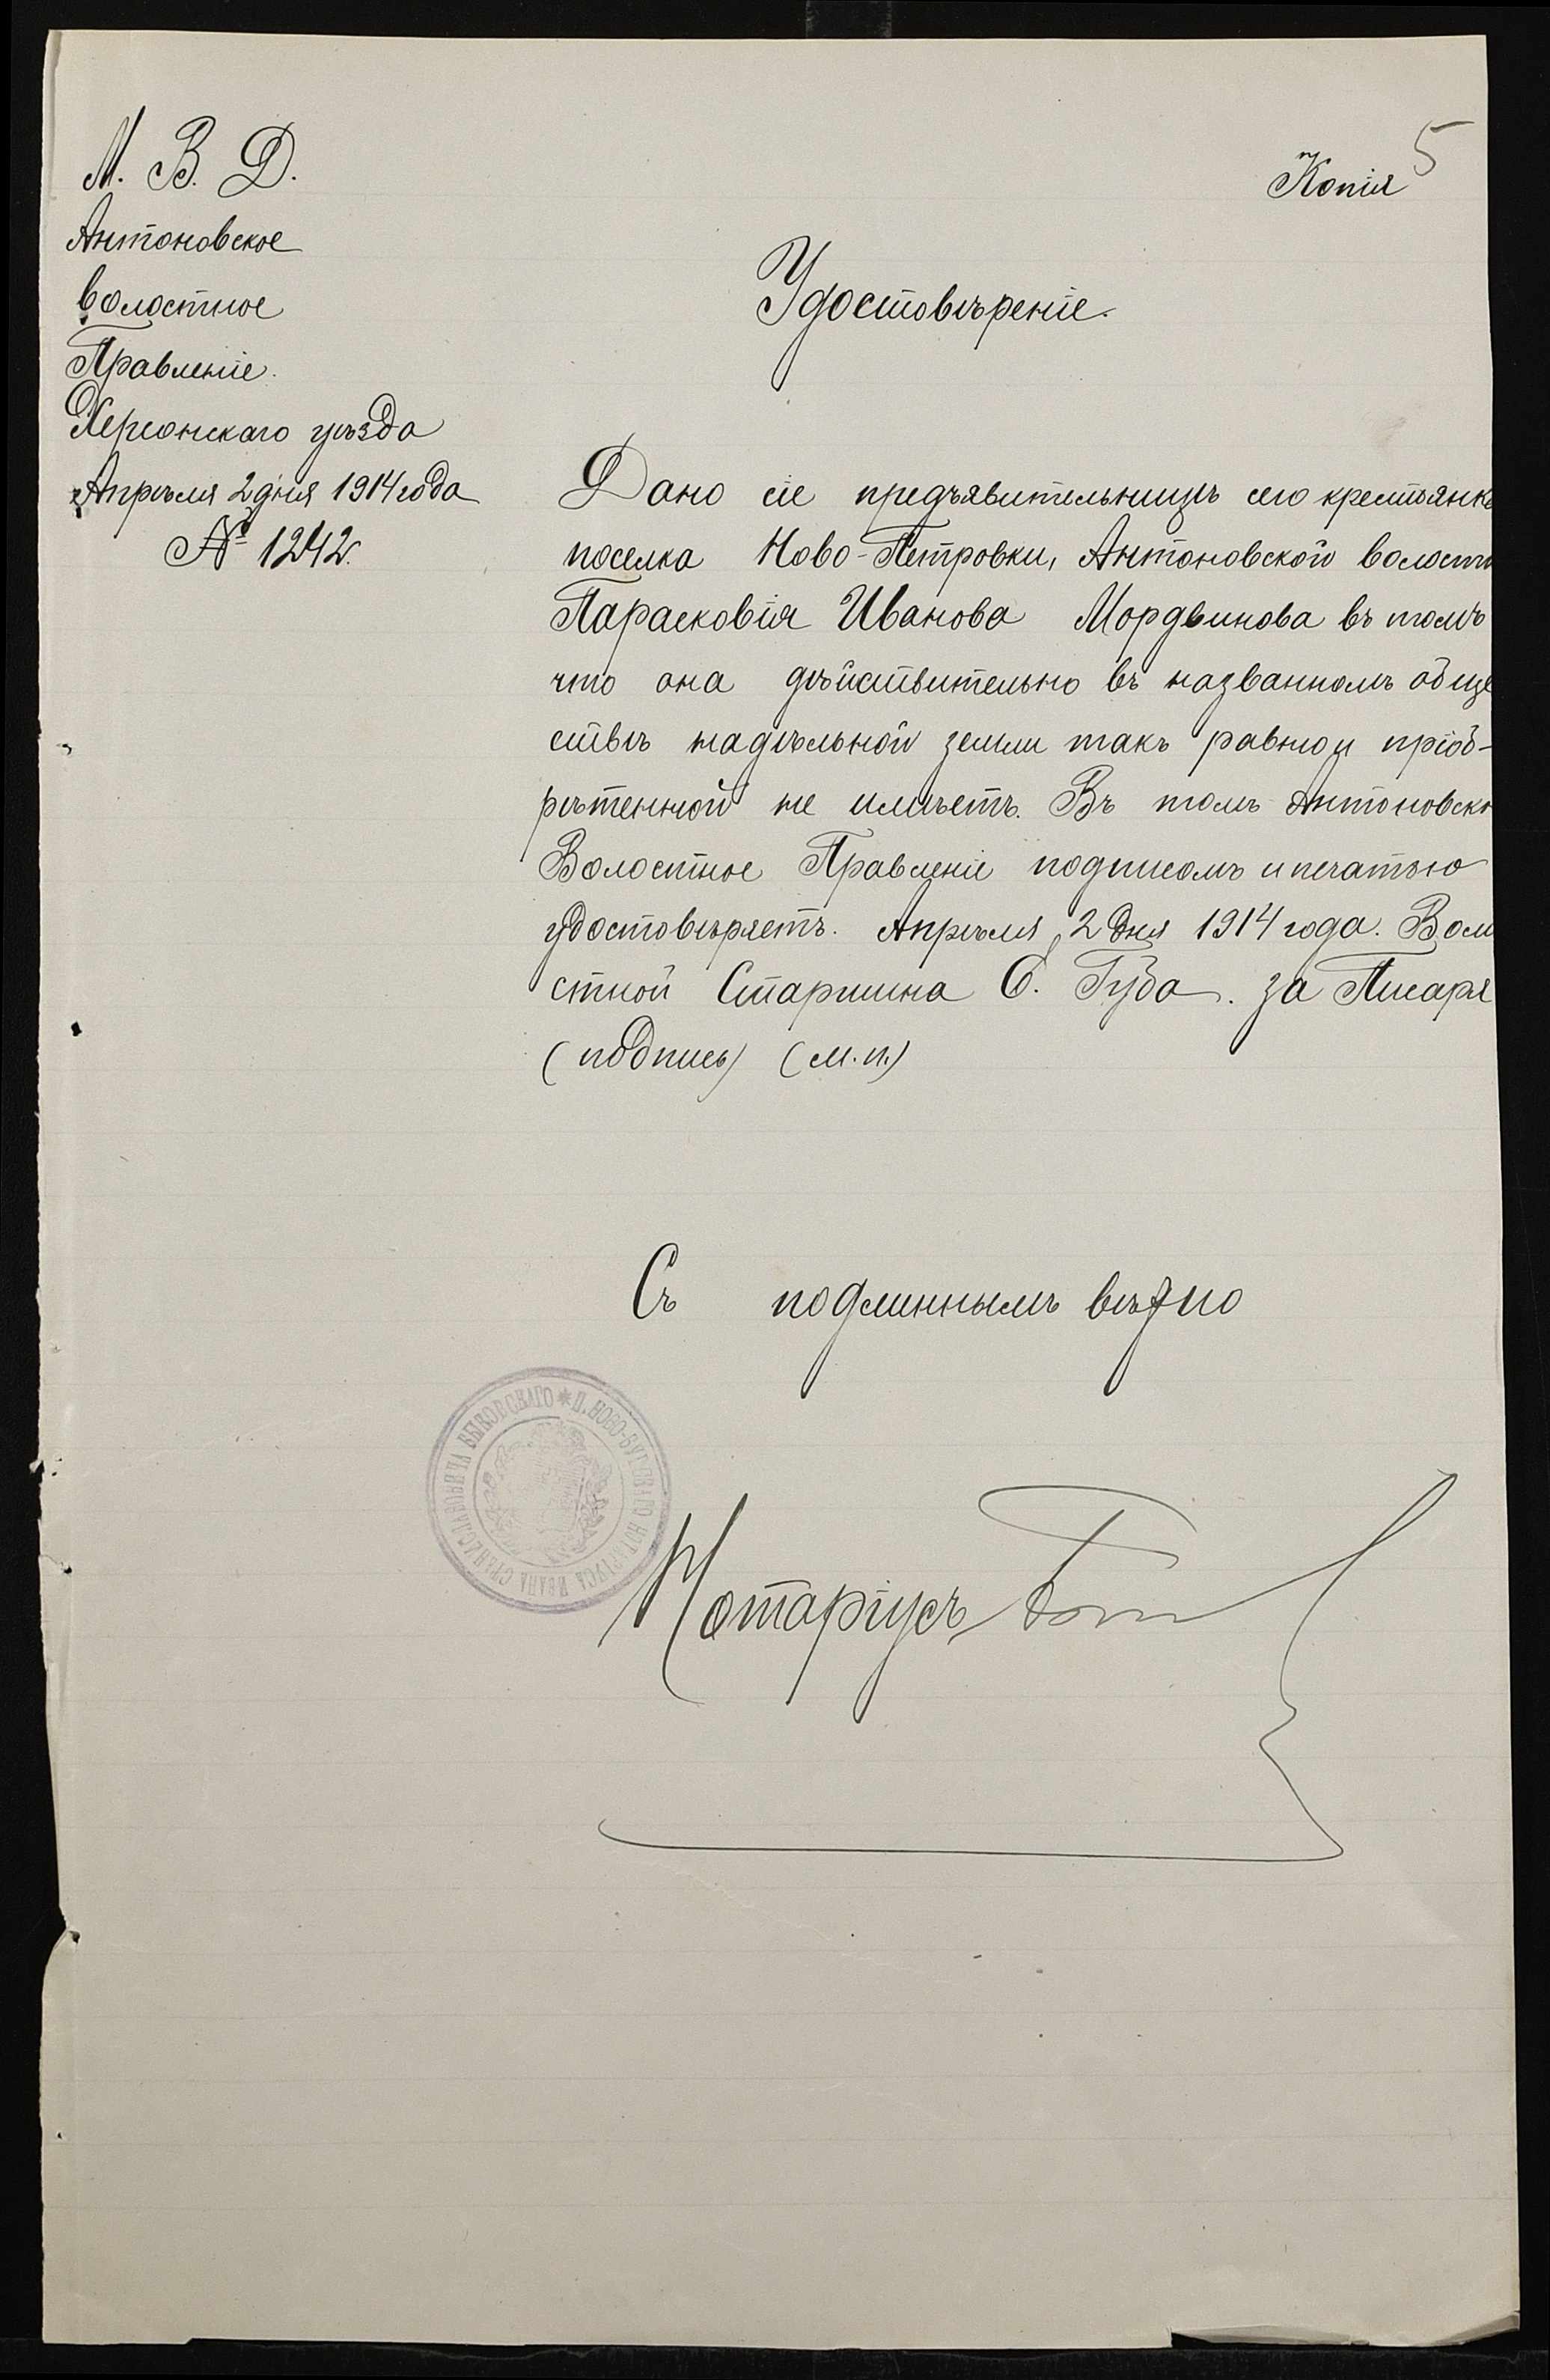 М. В. Д.
Антоновское
волостное
Правленіе.
Херсонскаго уѣзда
Апрѣля 2 дня 1914 года
№ 1242.
Копія 5
Удостовѣреніе.
Дано сіе предъявительницѣ сего крестьянкѣ
поселка Ново-Петровки, Антоновской волости
Парасковія Иванова Мордвинова въ томъ
что она дѣйствительно въ названномъ обще
ствѣ надѣльной земли такъ равно и пріоб-
рѣтенной не имѣетъ. Въ томъ Антоновско
Волостное Правленіе подписомъ и печатью
удостовѣряетъ. Апрѣля 2 дня 1914 года. Воло
стной Старшина С. Губа. за Писаря
(подпись) (м.п.)
Съ подлиннымъ вѣрно
П. НОВО-БУГСКАГО НОТАРІУСА ИВАНА СТАНИСЛАВОВИЧА БЫКОВСКАГО
Нотаріусъ